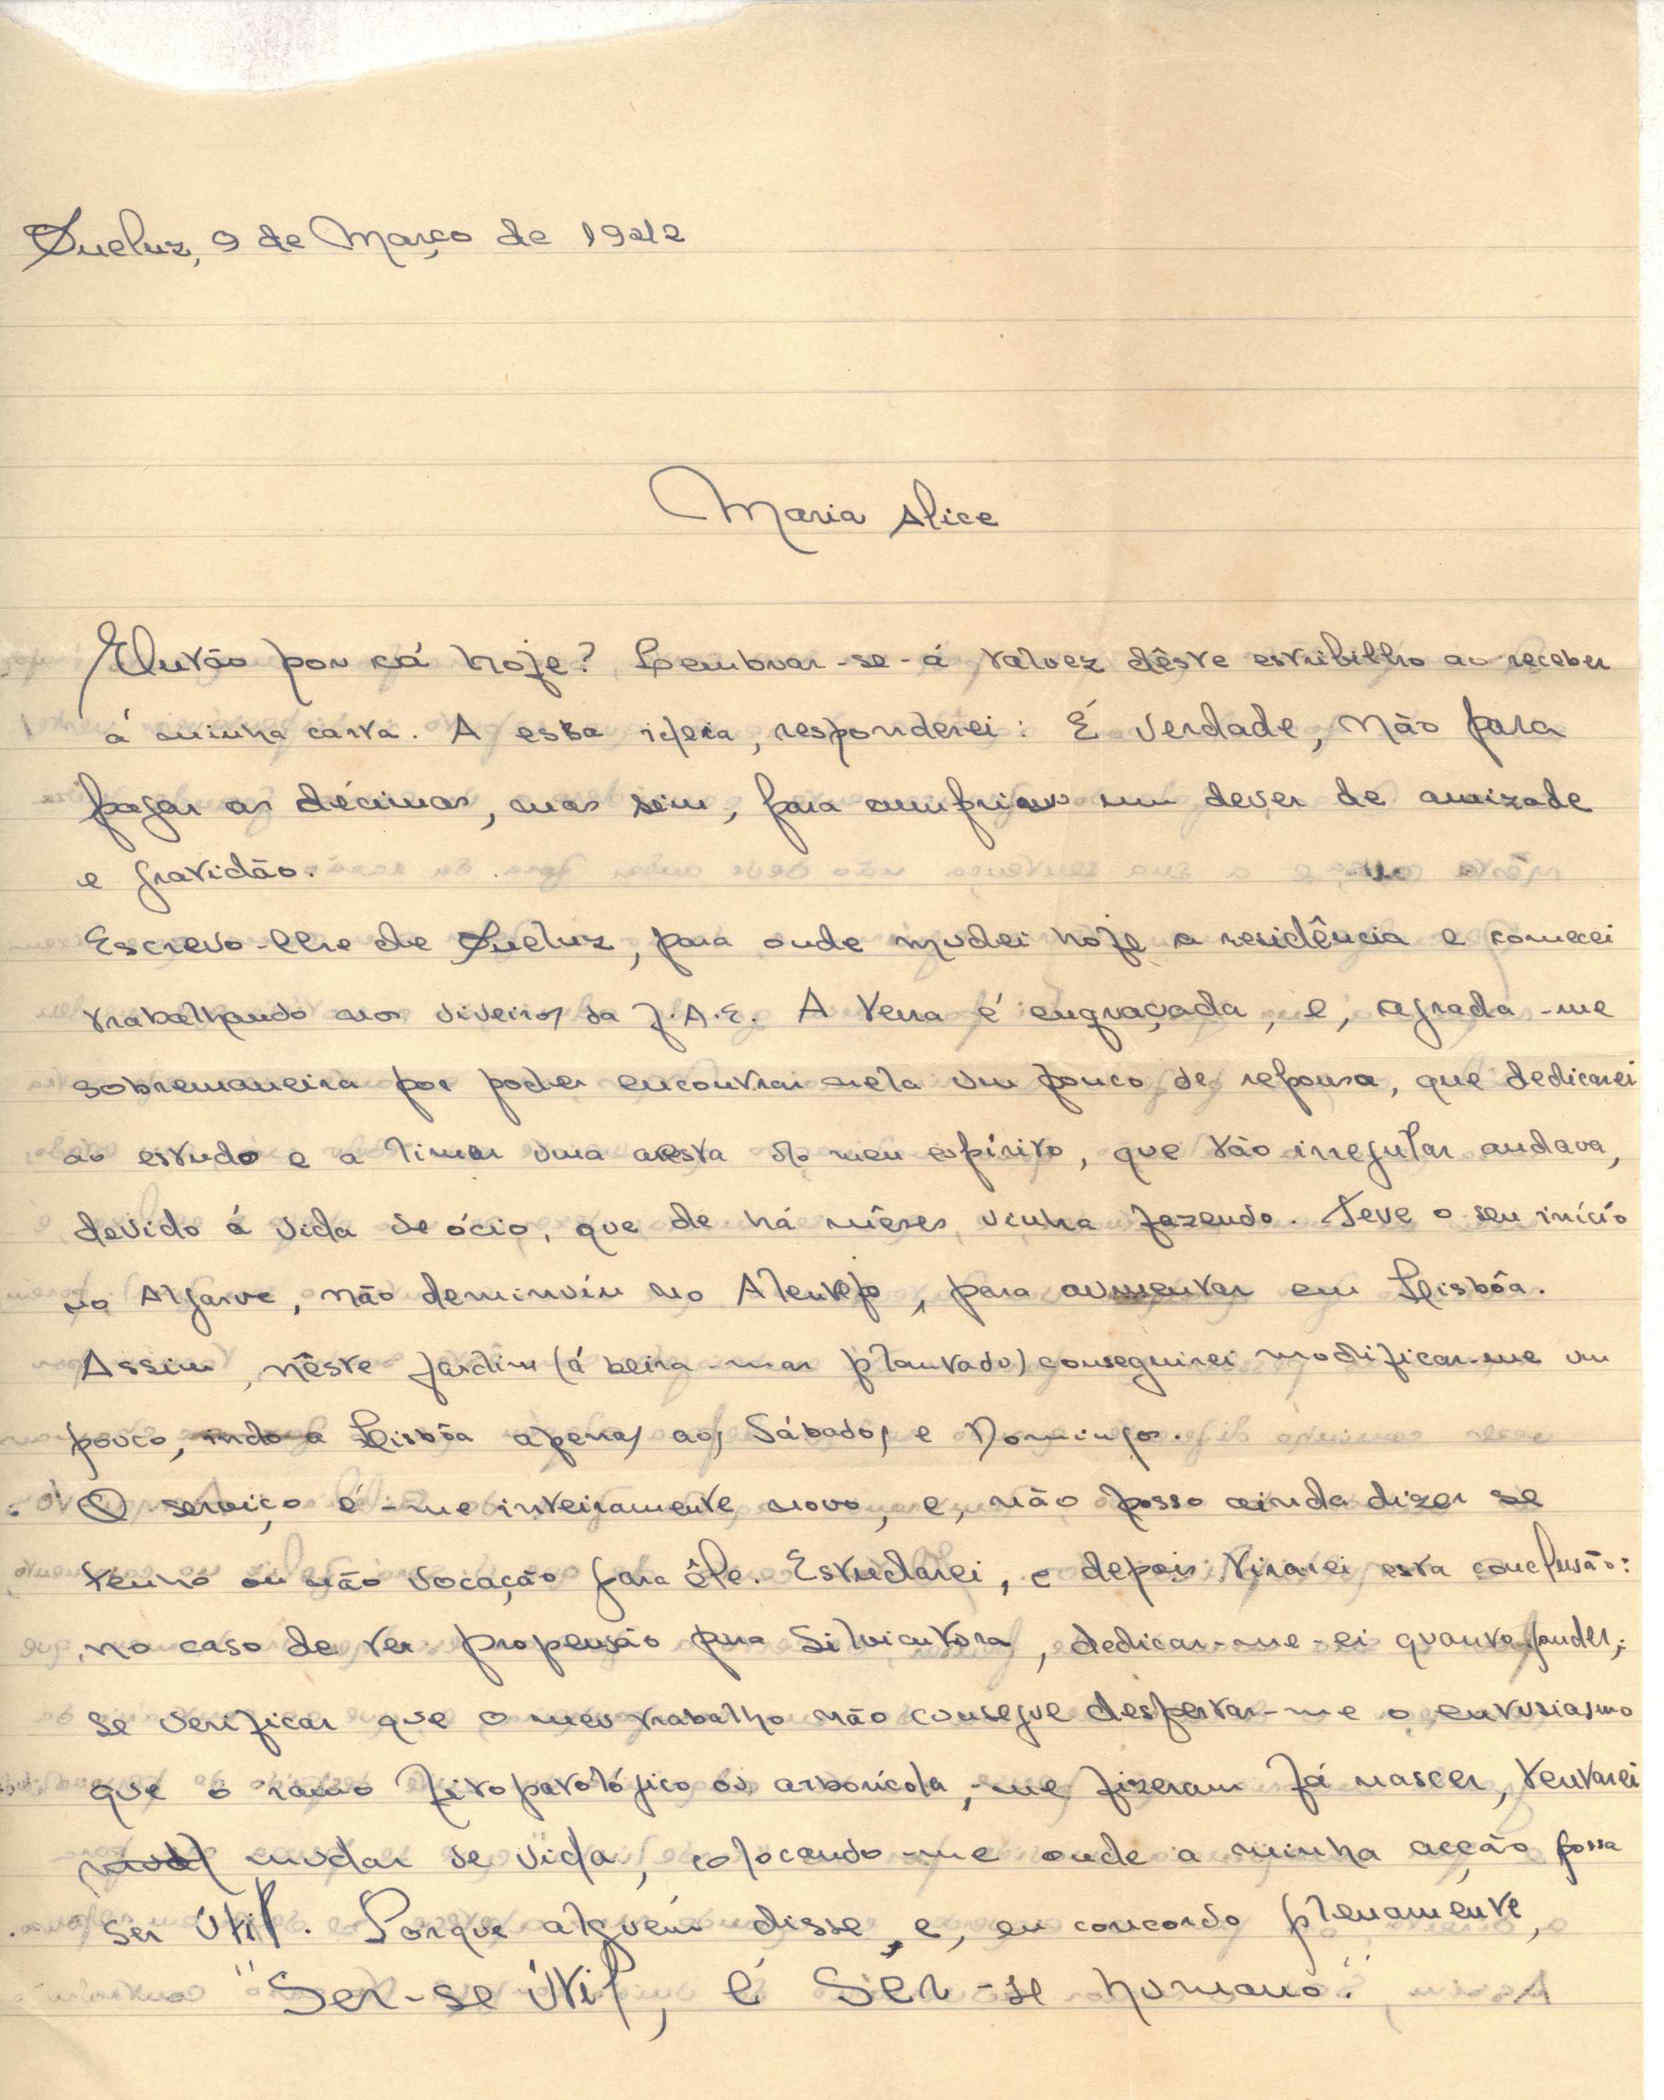 Queluz, 9 de Março de 1942
Maria Alice
Então por cá hoje? Lembrar-se-á talvez dêste estribilho ao receber
á minha carta. A essa ideia, responderei: É verdade, não para
pagar as décimas, mas sim, para cumprir um dever de amizade
e gratidão.
Escrevo-lhe de Queluz, para onde mudei hoje a residência e comecei
trabalhando nos viveiros da J.A.E. A terra é engraçada, e, agrada-me
sobremaneira por poder encontrar nela um pouco de repouso, que dedicarei
ao estudo e a limar uma aresta do meu espírito, que tão irregular andava,
devido á vida de ócio, que de há mêses vinha fazendo. Teve o seu início
no Algarve, não deminuíu no Alentejo, para aumentar em Lisbôa.
Assim, nêste jardim (á beira-mar plantado) conseguirei modificar-me um
pouco, indo a Lisbôa apenas aos Sábados e Domingos.
O serviço é-me inteiramente novo, e, não posso ainda dizer se
tenho ou não vocação para êle. Estudarei, e depois tirarei esta conclusão:
no caso de ter propensão pra Silvicultura, dedicar-me-ei quanto puder;
se verificar que o meu trabalho não consegue despertar-me o entusiasmo
que o ramo fitopatológico ou arborícola, me fizeram já nascer, tentarei
mudar de vida, colocando-me onde a minha acção possa
ser útil. Porque alguém disse, e, eu concordo plenamente,
"Ser-se útil, é Ser-se humano".